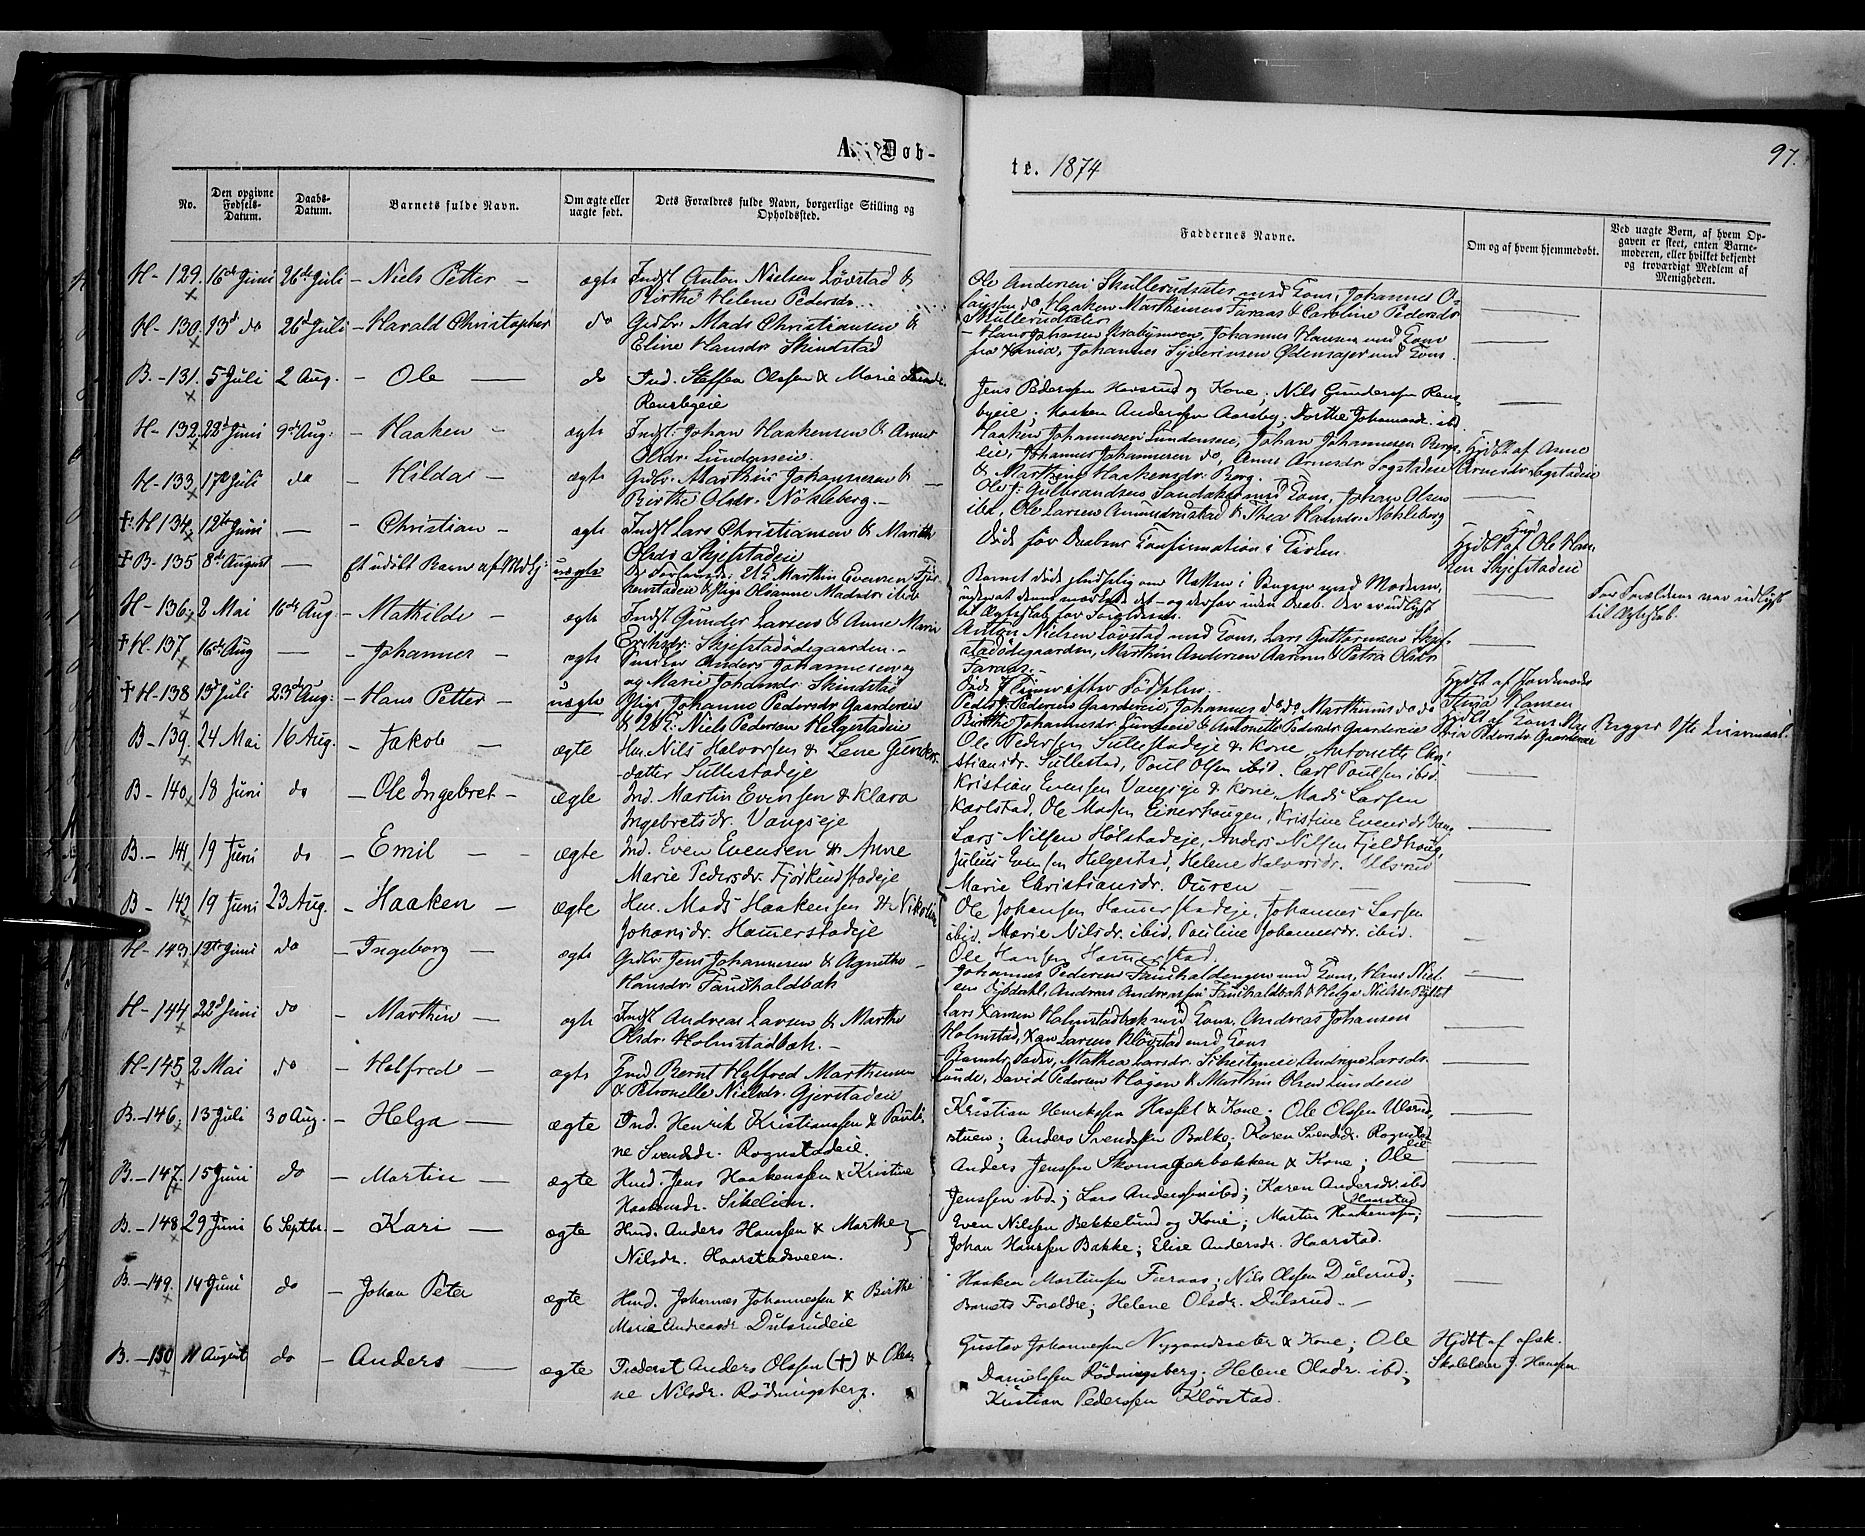 A. Døb-
te. 1874
97.
No.
Den opgivne Fødsels-Datum.
Daabs-Datum.
Barnets fulde Navn.
Om ægte eller uægte født.
Dets Forældres fulde Navn, borgerlige Stilling og Opholdssted.
Faddernes Navne.
Om og af hvem hjemmedøbt.
Ved uægte Børn, af hvem Op-
gaven er skeet, enten Barne-
moderen, eller hvilket bekjendt
og troværdigt Medlem af
Menigheden.
H- 129. 16de Juni 26de Juli - Niels Petter - ægte Indst Anton Nielsen Lövstad &
Birthe Helene Pedersdr.
Ole Andersen Skullerudsæter med Kone, Johannes O-
lausen do, Haaken Marthinsen Faraas & Caroline Pedersdr
Skullerudsæter
H- 130. 13d do 26d Juli - Harald Christopher do Grdbr. Mads Christiansen &
Eline Hansdr. Skindstad
Hans Johansen Johannes Hansen med Kone
Johannes Syversen Ødensager med Kone.
B.- 131. 5 Juli 2 Aug. - Ole - do Ind. Steffen Olsen & Marie
Rensbyeie
Jens Pederssen Hovsrud og Kone; Nils Gunderssen Rens-
byeie; Haaken Anderssen Aarsby; Dorthe Johannesdr. ibd.
H- 132. 22d Juni 9d Aug: - Haaken - ægte Indst: Johan Haakensen & Anne
Olsdr. Lundeneie.
Haaken Johannesen Lundeneie, Johan Johannesen Bergs-
eie, Johannes Johannesen do, Anne Arnesdr. Sogstadeie
& Marthine Haakensdr. Borg.
Hjdbt af Anne
Arnesdr. Sogstadeie
H- 133. 17d Juli do - Hilda - ægte Grdbr. Marthin Johannesen &
Birthe Olsdr. Nökleberg.-
Ole Gulbrandsen Sandaker med Kone, Johan Olsen
ibd, Ole Larsen Amundrustad & Thea Hansdr. Nökleberg
† H 134. 12te Juni - Christian - ægte Indst Lars Christiansen & Marthe
Olsdr. Skjefstadeie
Døde før Daabens Confirmation i Kirken.
Hjdbt af Ole Han-
sen Skjefstadeie
† B- 135 8de August - Et udøbt Barn af Mdkj: uægte Marthin Evensen
& Pige Oleanne Madsdr ibid
Barnet døde med Moderen,
For Forældrene var udlyst
til Ægteskab.
H- 136. 2 Mai 16de Aug - Mathilde - ægte Indst Gunder Larsen & Anne Maria
Eriksdr. Skjefstadödegaarden.-
Anton Nielsen Lövstad med Kone, Lars Guttormsen Skjef-
stadödegaarden, Marthin Andersen Aarnes & Petra Olsdr
Faraas.-
† H- 137 16de Aug - Johannes - ægte Anders Johannesen og
og Marie Johansdr. Skindstad
Døde Timer efter Fødselen.
Hjdbt af Jordemoder
Hansen
† H- 138 13d Juli 23d Aug: - Hans Petter - uægte Pige Johanne Pedersdr Gaardereie
& Niels Pedersen Helgestadeie
Peder Pedersen Gaardereie, Johannes do do, Marthinus do do
Birthe Johannesdr. Lundeie & Antonette Pedersdr Gaardereie
Begges 1ste Leiermaal.
B- 139. 24 Mai 16 Aug. - Jakob - ægte Hm. Nils Halvorsen & Lene Gunders-
datter Sullestadeje
Ole Pedersen Sullestadeje & Kone, Antonette Chri-
stiansdr. Sullestad, Poul Olsen ibid. Carl Poulsen ibid.
B- 140. 18 Juni do - Ole Ingebret - ægte Ind. Martin Evensen & Klara
Ingebretsdr. Vangseje
Kristian Evensen Vangseje & Kone, Mads Larsen
Karlstad, Ole Madsen Einerhaugen, Kristine Evensdr Vang
B.- 141. 19 Juni do - Emil - ægte Ind. Even Evensen & Anne
Marie Pedersdr. Fjörkenstadeje
Lars Nilsen Holstadeje, Anders Nilsen Fjeldhoug,
Julius Evensen Helgestad, Helene Halvorsdr. Ulsrud
Marie Christiansdr. Ouren
B- 142. 19 Juni 23 Aug. - Haaken - ægte Hm. Mads Haakensen & Nikoline
Johansdr. Hamerstadeje
Ole Johansen Hamerstadeje, Johannes Larsen
ibid. Marie Nilsdr. ibid, Pauline Johannesdr. ibid.
Ole Hansen Hamerstad.
H- 143. 12te Juni do - Ingeborg - ægte Grdbr. Jens Johannesen & Agnethe
Hansdr. Fauskaldbæk
Johannes Pedersen med Kone, Hans Niel-
sen Andreas Andreassen Fauskaldbæk & Helga Nielsdr
H- 144 22d Juni do - Marthin - ægte Indst Andreas Larsen & Marthe
Olsdr. Holmstadbæk.-
Lars Larsen Holmstadbæk med Kone, Andreas Johansen
Holmstad, Larsen Klövstad med Kone
H- 145 2 Mai do - Helfred - ægte Ind Bernt Helfred Marthinsen
& Petronelle Nielsdr. Gjerstadeie
Barnets Fader, Mathea Larsdr. Andrine Larsdr.
Lunde, David Pedersen Hagen & Marthin Olsen Lundeeie
B.- 146. 13 Juli 30 Aug. - Helga - ægte Ind. Henrik Kristianssen & Pauli-
ne Svendsdr. Rognstadeie.
Kristian Henrikssen Hassel & Kone; Ole Olssen Ulsrud-
stuen; Anders Svendssen Balke; Karen Svendsdr. Rognstad-
eie
B.- 147. 15 Juni do - Martin - ægte Hmd. Jens Haakenssen & Kristine
Haakensdr. Sikelien.
Anders Jenssen Skomagerbækken & Kone; Ole
Jenssen ibd.; Lars Anderssen ibd; Karen Andersdr. ibd
B.- 148 29 Juni 6 Septbr. - Kari - ægte Hmd. Anders Hanssen & Marthe
Nilsdr. Haarstadsveen.
Even Nilssen Bekkelund og Kone; Martin Haakenssen Haarstad;
Johan Hanssen Bakke; Elise Andersdr. Haarstad.
B.- 149. 14 Juni do - Johan Peter ægte Hmd. Johannes Johannessen & Birthe
Marie Andreasdr Dulsrudeie
Haaken Martinssen Faraas; Nils Olssen Dulsrud;
Barnets Forældre; Helene Olsdr. Dulsrud.-
B.- 150 11 August do - Anders - ægte Føderst Anders Olssen (+) & Olea-
ne Nilsdr. Rödningsberg.
Gustav Johannessen Nygaardssæter & Kone; Ole
Danielssen Rödningsberg; Helene Olsdr. ibd.
Kristian Pederssen Klövstad.
Hjdbt af afsk.
Skolelærer J. Hanssen